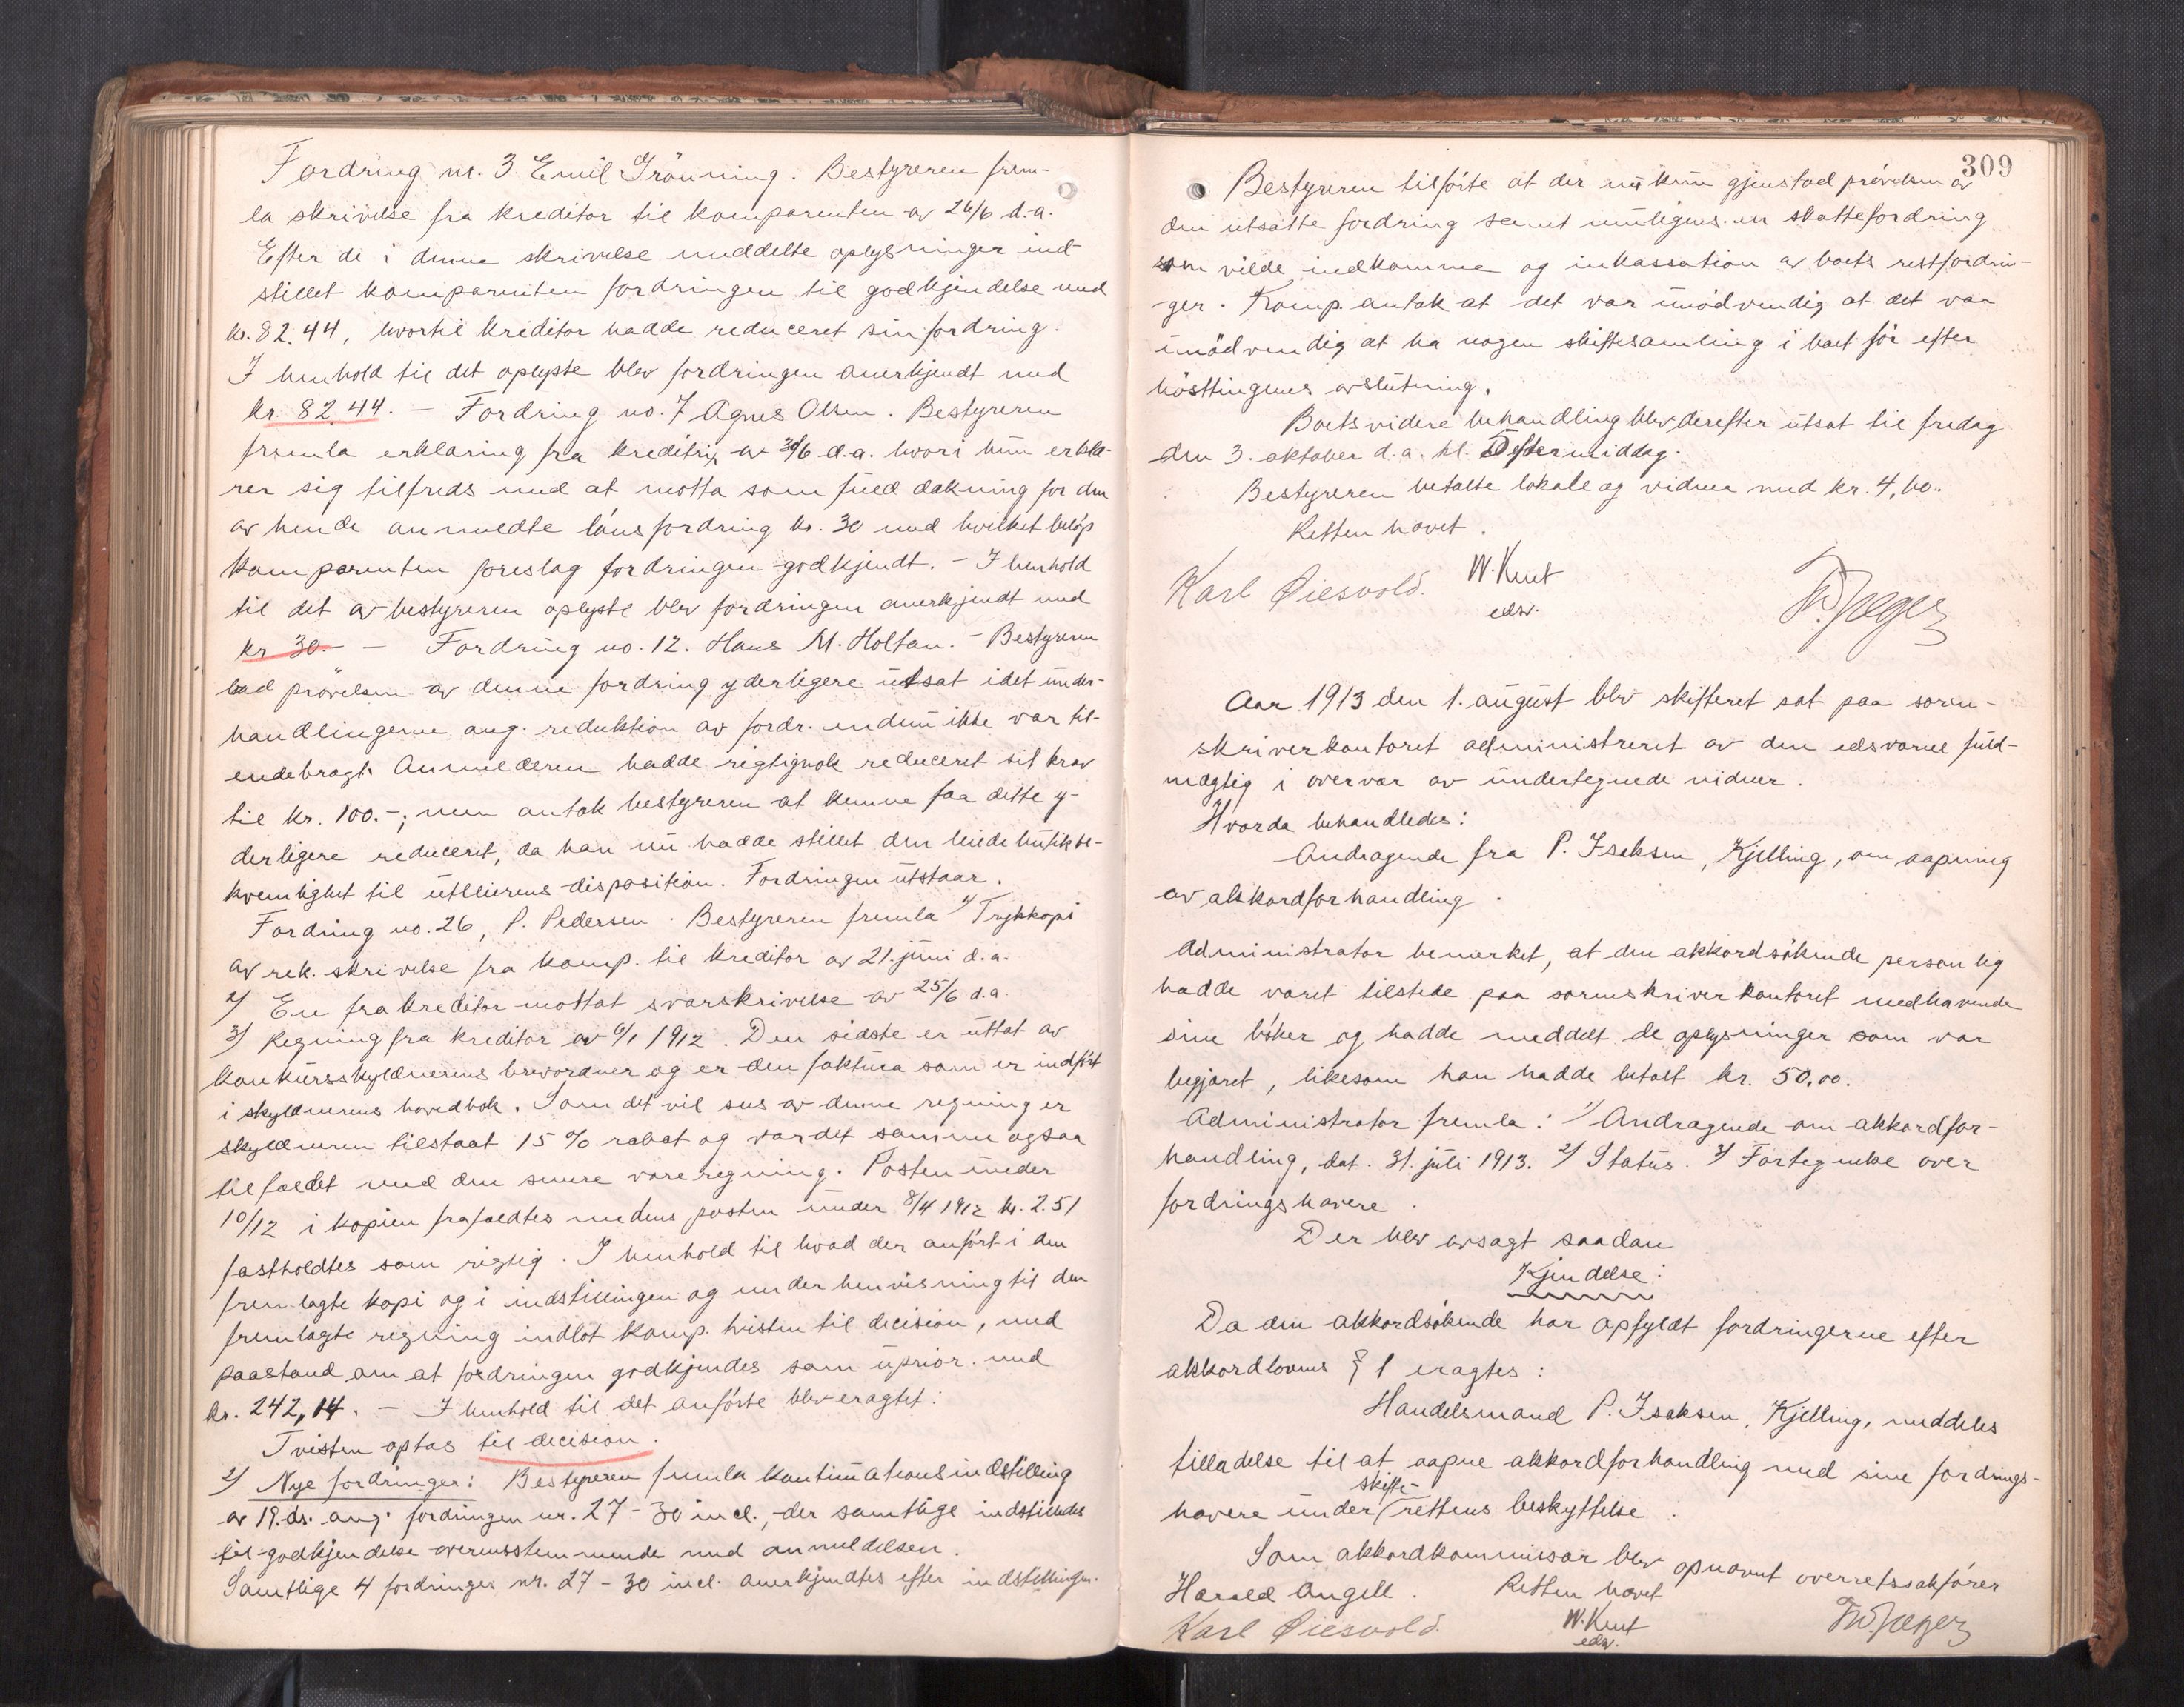 Fordring nr. 3 Emil Grönning. Bestyreren frem-
la skrivelse fra kreditor til komparenten av 26/6 d.a.
Efter de i denne skrivelse meddelte oplysninger ind-
stillet komparenten fordringen til godkjendelse med
kr. 82.44, hvortil kreditor hadde reduceret sin fordring.
I henhold til det oplyste blev fordringen anerkjendt med
kr. 82.44. – Fordring no. 7 Agnes Olsen. Bestyreren
fremla erklæring fra kreditrix av 30/6 d.a. hvori hun erklæ-
rer sig tilfreds med at motta som fuld dækning for den
av hende anmeldte lönsfordring kr. 30 med hvilket belöp
komparenten foreslog fordringen godkjendt. – I henhold
til det av bestyreren oplyste blev fordringen anerkjendt med
kr 30.– – Fordring no. 12. Hans M. Holtan. – Bestyreren
bad prövelsen av denne fordring yderligere utsat idet under-
handlingerne ang. reduktion av fordr. endnu ikke var til-
endebragt. Anmelderen hadde rigtignok reduceret sit krav
til kr. 100.–; men antok bestyreren at kunne faa dette y-
derligere reduceret, da han nu hadde stillet den leiede butikbe-
kvemlighet til utleierens disposition. Fordringen utstaar.
Fordring no. 26, P. Pedersen. Bestyreren fremla 1) Trykkopi
av rek. skrivelse fra komp. til kreditor av 21. juni d.a.
2) En fra kreditor mottat svarskrivelse av 25/6 d.a.
3) Regning fra kreditor av 6/1 1912. Den sidste er uttat av
konkursskyldnerens brevordner og er den faktura som er indfört
i skyldnerens hovedbok. Som det vil sees av denne regning er
skyldneren tilstaat 15 % rabat og var det samme ogsaa
tilfældet med den senere vareregning. Posten under
10/12 i kopien frafaldtes medens posten under 8/4 1912 kr. 2.51
fastholdtes som rigtig. I henhold til hvad der anfört i den
fremlagte kopi og i indstillingen og under henvisning til den
fremlagte regning indlot komp. tvisten til decision, med
paastand om at fordringen godkjendes som uprior. med
kr. 242,14. – I henhold til det anförte blev eragtet:
Tvisten optas til decision.
2) Nye fordringer: Bestyreren fremla kontinuationsindstilling
av 19. ds. ang. fordringen nr. 27 – 30 incl., der samtlige indstilledes
til godkjendelse overensstemmende med anmeldelsen.
Samtlige 4 fordringer nr. 27 – 30 incl. anerkjendtes efter indstillingen.
309
Bestyreren tilförte at der nu kun gjenstod prövelsen av
den utsatte fordring samt muligens en skattefordring
som vilde indkomme og inkassation av boets restfordrin-
-ger. Komp. antok at det var unödvendig at det var
unödvendig at ha nogen skiftesamling i boet för efter
hösttingenes avslutning.
Boets videre behandling blev derefter utsat til fredag
den 3. oktober d.a. kl. 5 eftermiddag.
Bestyreren betalte lokale og vidner med kr. 4,60.
Retten hævet.
Karl Øiesvold. W. Knut Th. Jæger
edsv.
Aar 1913 den 1. august blev skifteret sat paa soren-
skriverkontoret administreret av den edsvorne fuld-
mægtig i overvær av undertegnede vidner.
Hvorda behandledes:
Andragende fra P. Isaksen, Kjelling, om aapning
av akkordforhandling.
Administrator bemerket, at den akkordsökende personlig
hadde været tilstede paa sorenskriverkontoret medhavende
sine böker og hadde meddelt de oplysninger som var
begjæret, likesom han hadde betalt kr. 50,00.
Administrator fremla: 1) Andragende om akkordfor-
handling, dat. 31. juli 1913. 2) Status. 3) Fortegnelse over
fordringshavere.
Der blev avsagt saadan
Kjendelse:
Da den akkordsökende har opfyldt fordringerne efter
akkordlovens § 1 eragtes:
Handelsmand P. Isaksen, Kjelling, meddeles
tilladelse til at aapne akkordforhandling med sine fordrings-
skifte-
havere under rettens beskyttelse.
Som akkordkommissær blev opnævnt overretssakförer
Harald Angell. Retten hævet
Karl Øiesvold. W. Knut Th. Jæger
edsv.